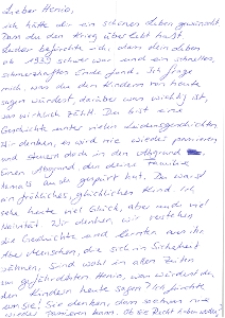 Lieber Henio,
ich hätte dir ein schönes Leben gewünscht.
Dass du den Krieg überlebt hast.
Leider befürchte ich, dass dein Leben
ab 1939 schwer war und ein schnelles,
schmerzhaftes Ende fand. Ich frage
mich, was du den Kindern von heute
sagen würdest darüber was wichtig ist,
was wirklich zählt. Du bist eine
Geschichte unter vielen Leidensgeschichten
Wir denken, es wird nie wieder passieren
und steuern doch in den Abgrund
Einen Abgrund, den deine Familie
damals auch gespürt hat. Du warst
ein fröhliches, glückliches Kind. Ich
sehe heute viel Glück, aber auch viel
Naivität. Wir denken, wir verstehen
die Geschichte und lernten aus ihr
Aber Menschen, die sich in Sicherheit
wähnen, sind wohl in allen Zeiten
am gefährdetsten. Henio, was würdest du
den Kindern heute sagen? Ich fürchte
um sie! Sie denken, dass sowas nie
wieder passieren kann. Ob sie Recht